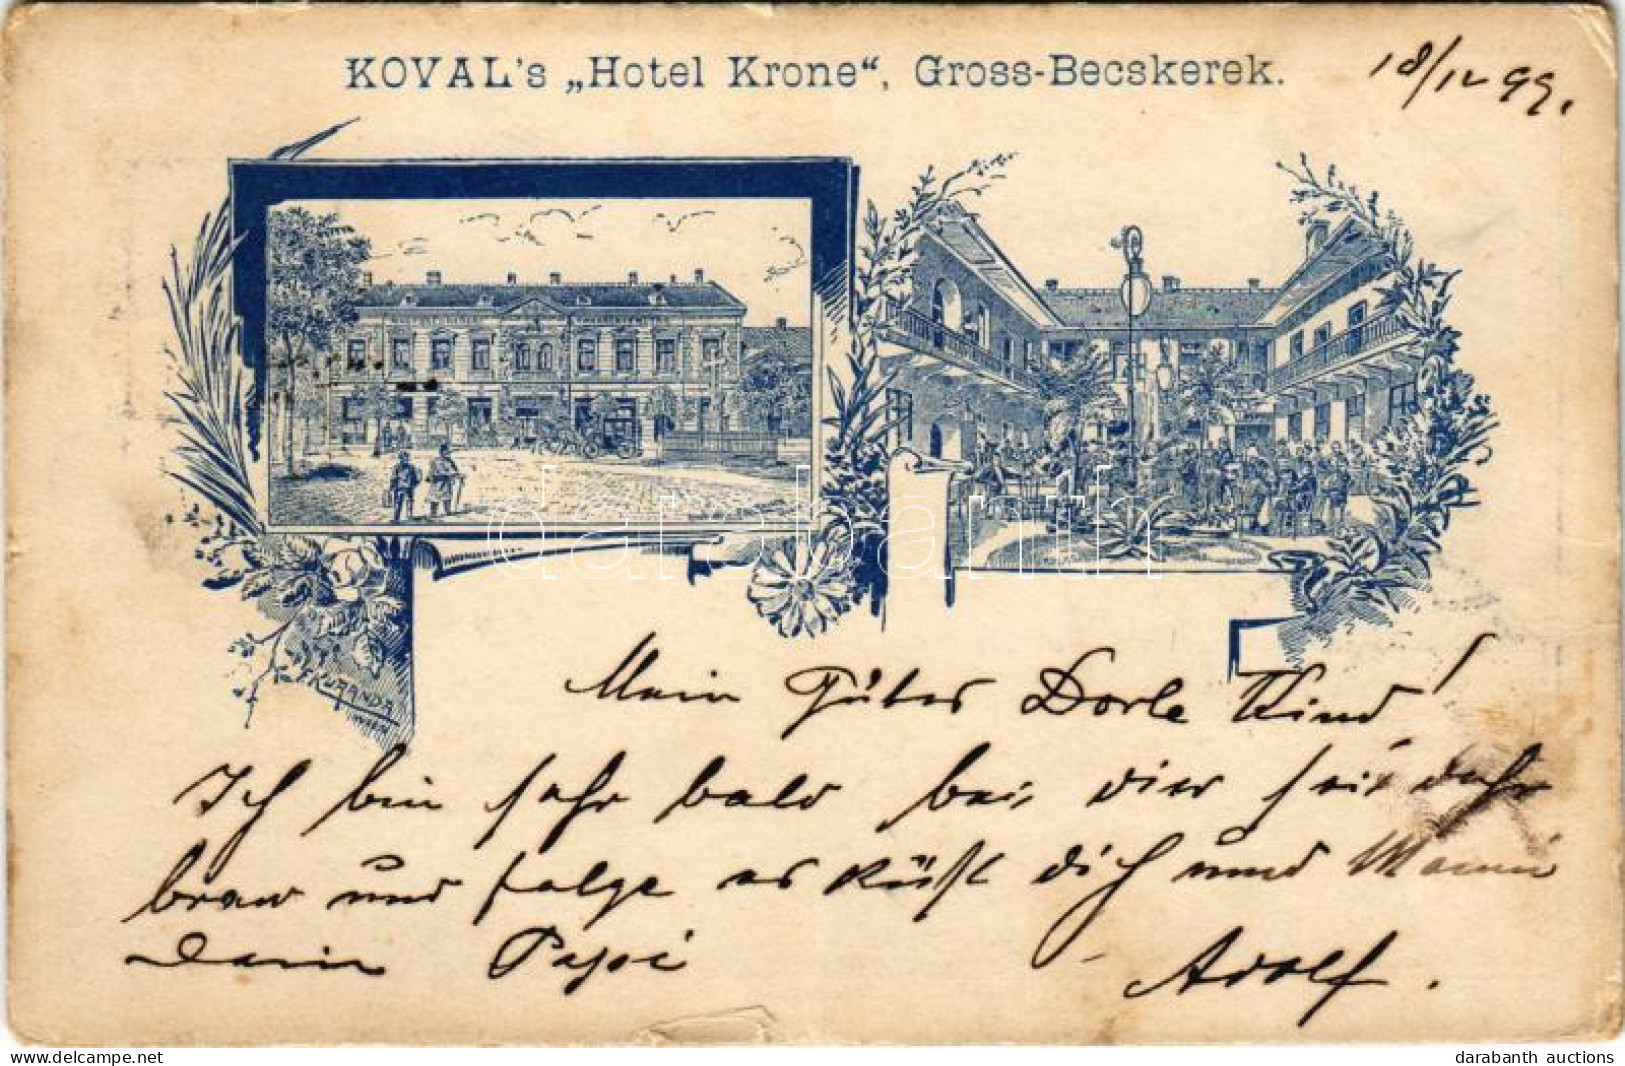 KOVAL's „Hotel Krone“, Gross-Becskerek.
18/12 99.
F. KURANDA
WIEN
darabanth
Mein Gutes Dorle Kind!
Ich bin sehr bald bei dier sei sehr
brav und folge es küßt dich und Mama
Dein Papa Adolf.
© www.delcampe.net
darabanth auctions